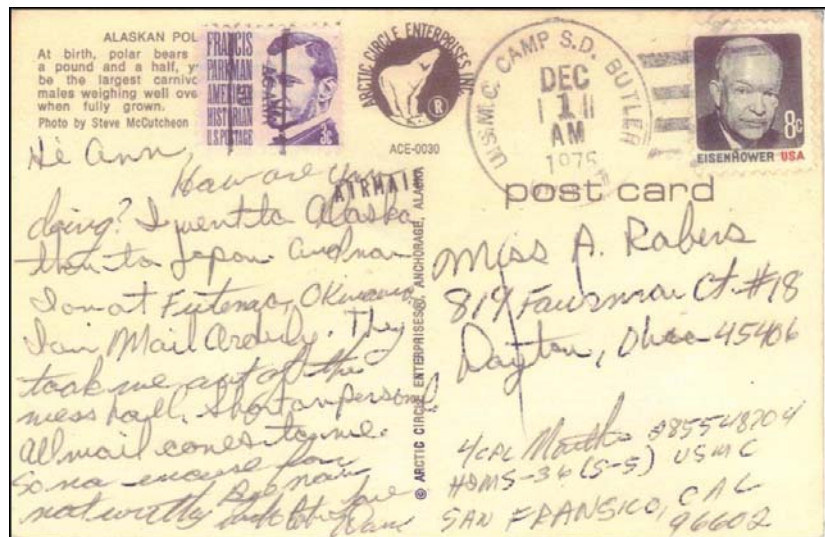 ALASKAN POL
At birth, polar bears
a pound and a half, y
be the largest carnivo
males weighing well ove
when fully grown.
Photo by Steve McCutcheon
FRANCIS
PARKMAN
AMERICAN
HISTORIAN
U.S. POSTAGE
3c
ARCTIC CIRCLE ENTERPRISES INC
®
ACE-0030
U.S.M.C. CAMP S.D. BUTLER
DEC
1
AM
1975
8c
EISENHOWER USA
AIRMAIL
post card
© ARCTIC CIRCLE ENTERPRISES®, ANCHORAGE, ALASKA
Hi Ann,
How are you
doing? I went to Alaska
then to Japan. And now
I am at Futenga, Okinawa,
I am Mail Orderly. They
took me out of the
mess hall, short on personel
All mail comes to me.
So no excuse for
not
Miss A. Robers
819 Ct. #18
Dayton, Ohio 45406
HQMS-36 (S-5) USMC
SAN FRANSICO, CAL
96602